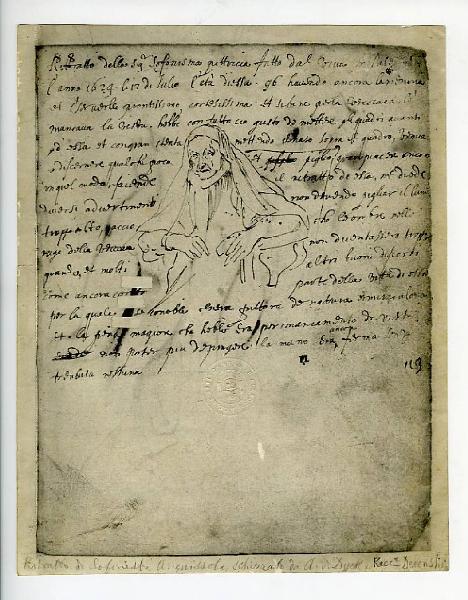 Rittratto della Sigra Sofonisma pittricia fatto dal vivo in
l'anno 1624 li 12 di Julio l'età di essa 96 havendo ancora la memoria
et il serverllo prontissimo, cortesissima et sebene per la vecciaia
mancava la vista, hebbe con tutto cio gusto de mettere gli quadri avanti
ad essa et con gran stenta mettendo il naso sopra il quadro, venne
a discernere qualche poco et piglio gran piacer ancora
in quel modo, facendo il ritratto de essa, me diede
diversi advertimenti non dovendo pigliar il lume
troppo alto, accio che l'ombre nelle
ruge della vecciaia non diventassero troppo
grande, et molti altri buoni discorsi
come ancora parte della vita di essa
per la quale era pittora de natura et miraculosa
et la pena magiore che hebbe era per mancamento di vista
non poter piu dipingere la mano era ancora ferma senza
tremula nessuna
Ritratto di Sofonisba Anguissola, schizzato da A. v. Dyck